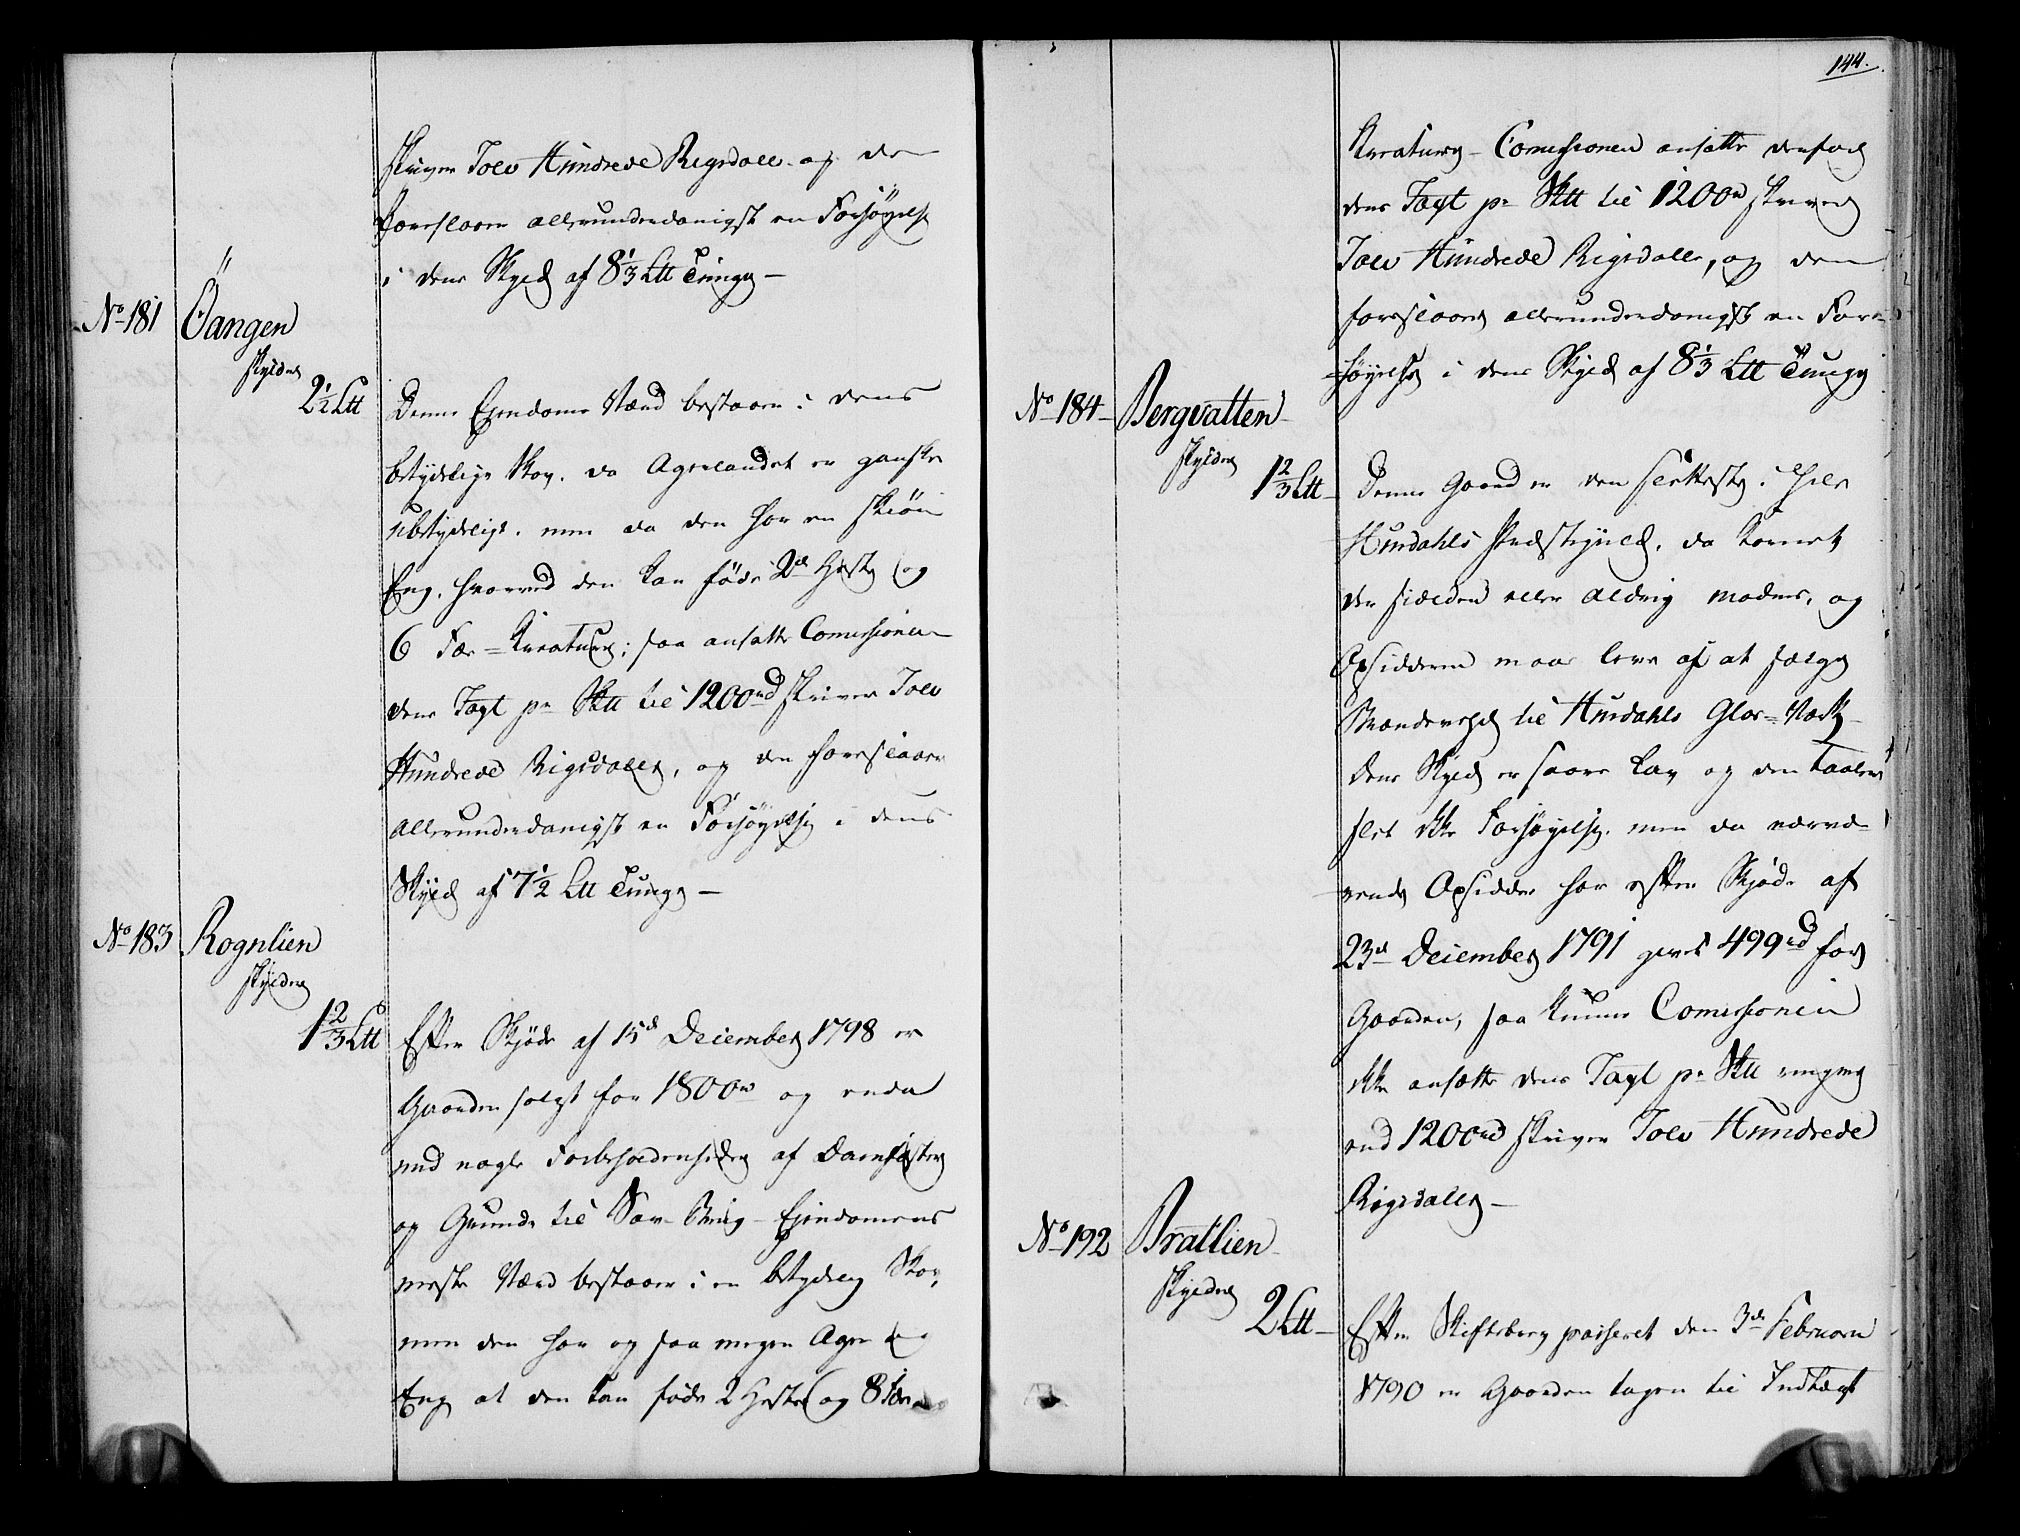 skriver Tolv Hundrede Rigsdaler og den
foreslaaer allerunderdanigst en Forhøyelse
i dens Skyld af 8⅓ Ltt Tunge —
No 181 Öangen
skylder
2½ Ltt
Denne Ejendoms Værd bestaaer i dens
betydelige Skov, da Agerlandet er ganske
ubetydeligt, men da den har en skiøn
Eng, hvorved den kan føde 2de Heste og
6 Fæe-Kreature; saa ansatte Comissionen
dens Taxt pr Sktt til 1200rd skriver Tolv
Hundrede Rigsdaler, og den foreslaaer
allerunderdanigst en Forhøyelse i dens
Skyld af 7½ Ltt Tunge —
No 183 Rognlien
skylder
1⅔ Ltt
Efter Skjøde af 15de December 1798 er
Gaarden solgt for 1800rd og enda
med nogle Forbeholdenheder af Damfæster
og Grunde til Sav-Brug - Ejendomens
meste Værd bestaaer i en betydelig Skov,
men den har og saa megen Ager og
Eng at den kan føde 2 Heste og 8 Fæe
144.
Kreature — Comissionen ansatte derfor
dens Taxt pr Sktt til 1200rd skriver
Tolv Hundrede Rigsdaler, og den
foreslaaer allerunderdanigst en For-
høyelse i dens Skyld af 8⅓ Ltt Tunge
No 184 - Bergvatten
skylder
1⅔ Ltt
Denne Gaard er den sletteste i hele
Hurdahls Præstegield, da Kornet
der sielden eller aldrig modnes, og
Opsidderen maae leve af at sælge
Brændeved til Hurdahls Glas-Værk
Dens Skyld er saare lav og den taaler
slet ikke Forhøyelse, men da nærvæ-
rende Opsidder har efter Skjøde af
23de December 1791 givet 499rd for
Gaarden, saa kunne Comissionen
ikke ansætte dens Taxt pr Sktt ringere
end 1200rd skriver Tolv Hundrede
Rigsdaler —
No 192 Brattlien
skylder
2 Ltt
Efter Skiftebrev passeret den 3de Februarii
1790 er Gaarden tagen til Indtægt